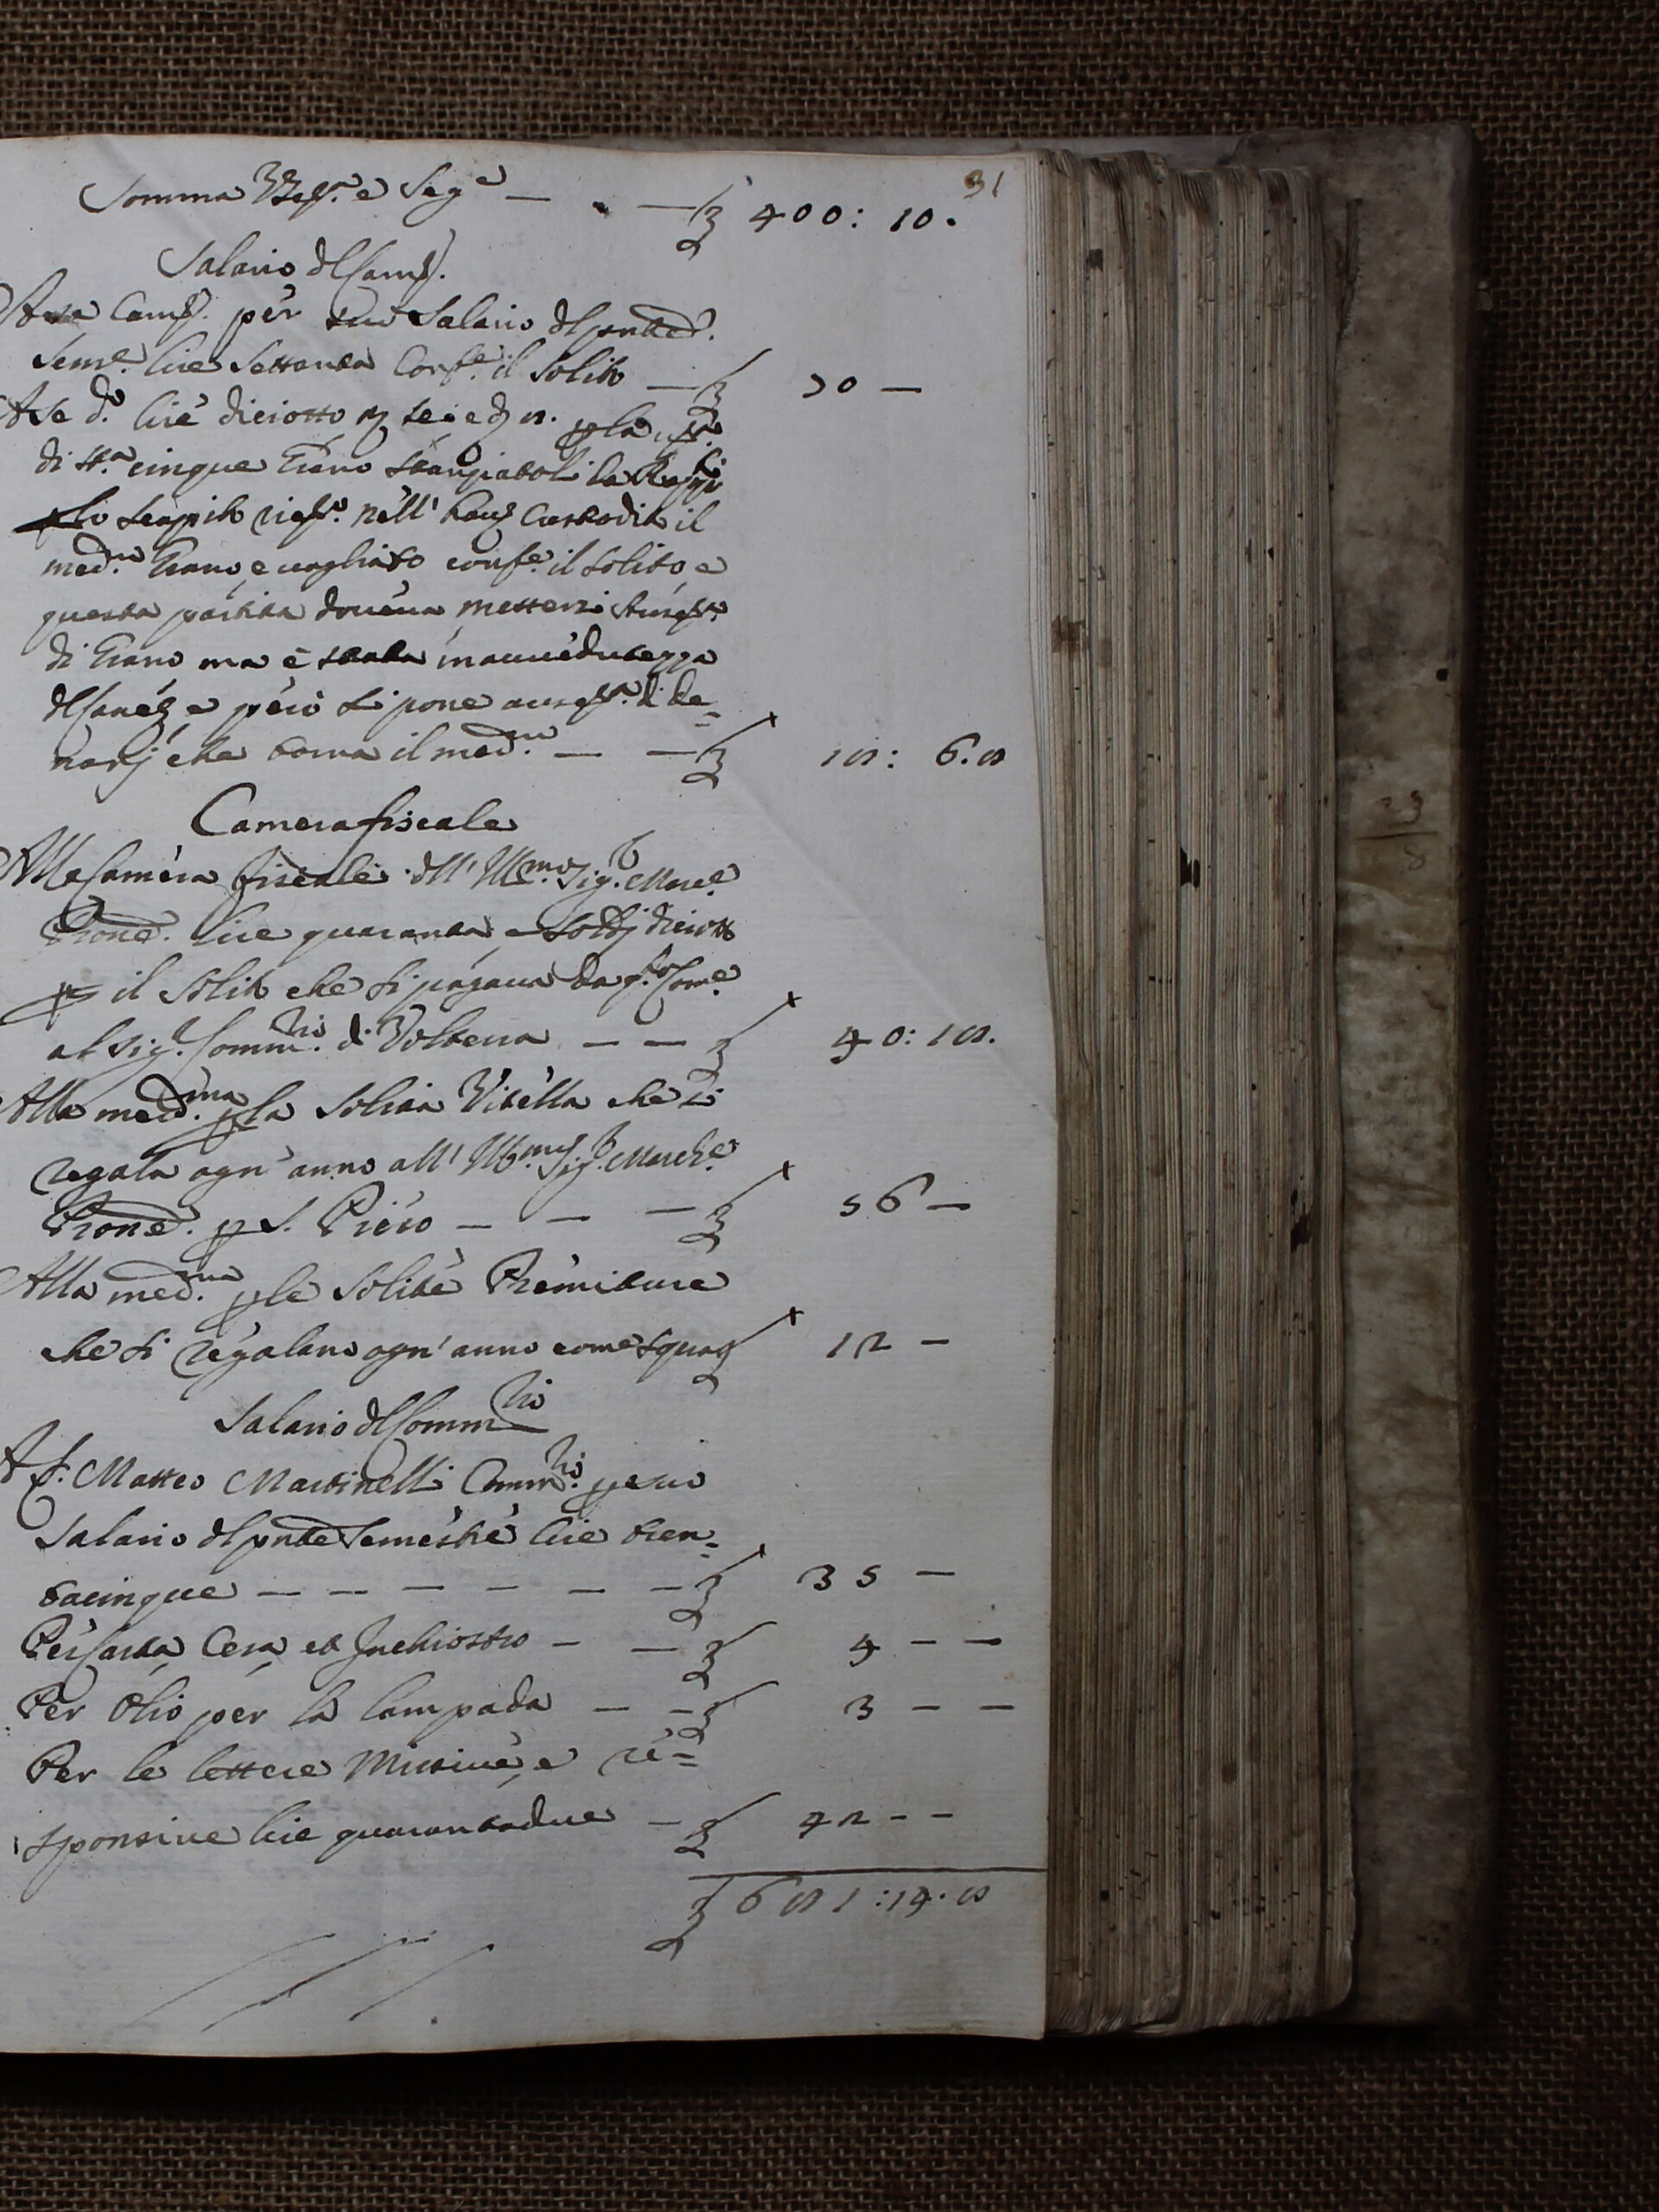 31
Somma e Seg.e — . — £ 400: 10.
Salario del Canc.
A se Canc. per suo Salario del pnte
Sem.e lire Settanta Conf.e il Solito — £ 70 —
A se d.o lire diciotto sei e d 8. p la
di st.a cinque Grano la
lo scapito nell' Custodito il
med.mo Grano, e vagliato conf.e il solito, e
questa partita doveva mettersi
di Grano ma è stata inavvedutezza
del Canc. e però si pone di de=
narj che torna il med.mo — — £ 18: 6.8
Camera fiscale
Alla Camera fiscale dell' Ill.mo Sig.r Marc.e
Prone. lire quaranta, e Soldj diciotto
p il Solito che si pagava da q.sto Com.e
al Sig.r Comm.rio di Volterra — — £ 40: 18.
Alla med.ma p la Solita Vitella che si
regala ogn' anno all' Ill.mo Sig.r March.e
Prone. p S. Piero — — — £ 56 —
Alla med.ma p le Solite Primiture
che si regalano ogn' anno come £ 12 —
Salario del Comm.rio
A S. Matteo Martinelli Comm.rio p suo
Salario del pnte Semestre lire tren=
tacinque — — — — — — £ 35 —
Per Carta, Cera, et Inchiostro — — £ 4 — —
Per Olio per la lampada — — £ 3 — —
Per le lettere Missive, e re=
sponsive lire quarantadue — £ 42 — —
£ 681:14.8